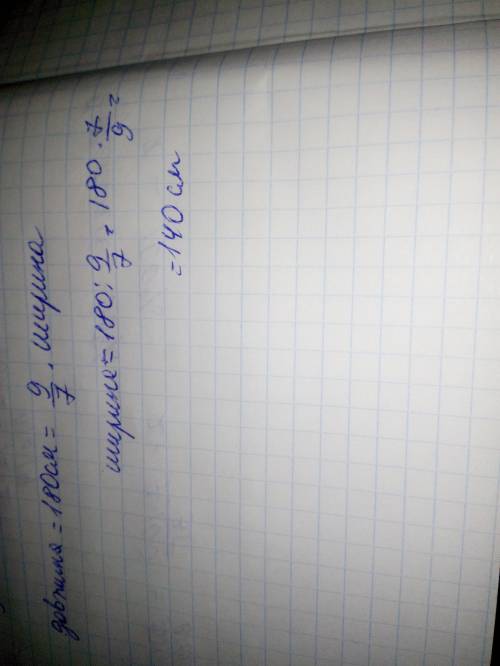 довжина = 180см = 9/7 · ширина
ширина = 180 : 9/7 = 180 · 7/9 =
= 140 см